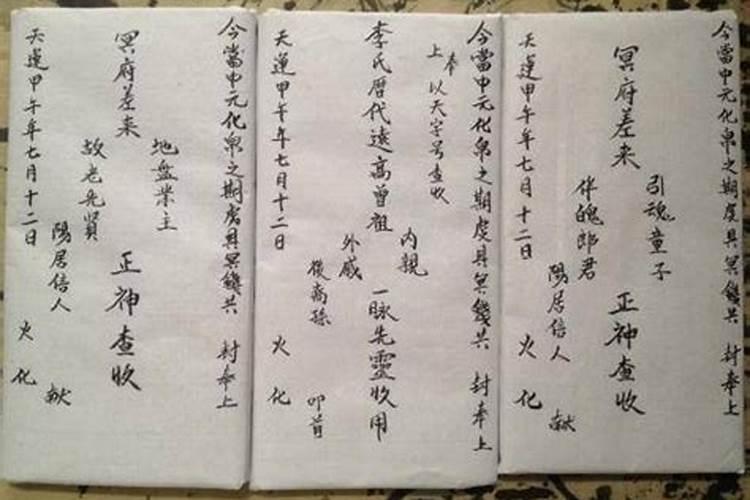 今當中元化帛之期虔具冥錢共 封奉上
引魂童子
冥府差来 正神查收
伴魄郎君
陽居信人 献
天運甲午年七月十二日 火化
今當中元化帛之期虔具冥錢共 封奉上
奉
上 以天字号查收
內親
李氏暦代遠高曾祖 一脉先靈收用
外戚
後裔孫 叩首
天運甲午年七月十二日 火化
今當中元化帛之期虔具冥錢共 封奉上
地盤業主
冥府差来 正神查收
故老先賢
陽居信人 献
天運甲午年七月十二日 火化